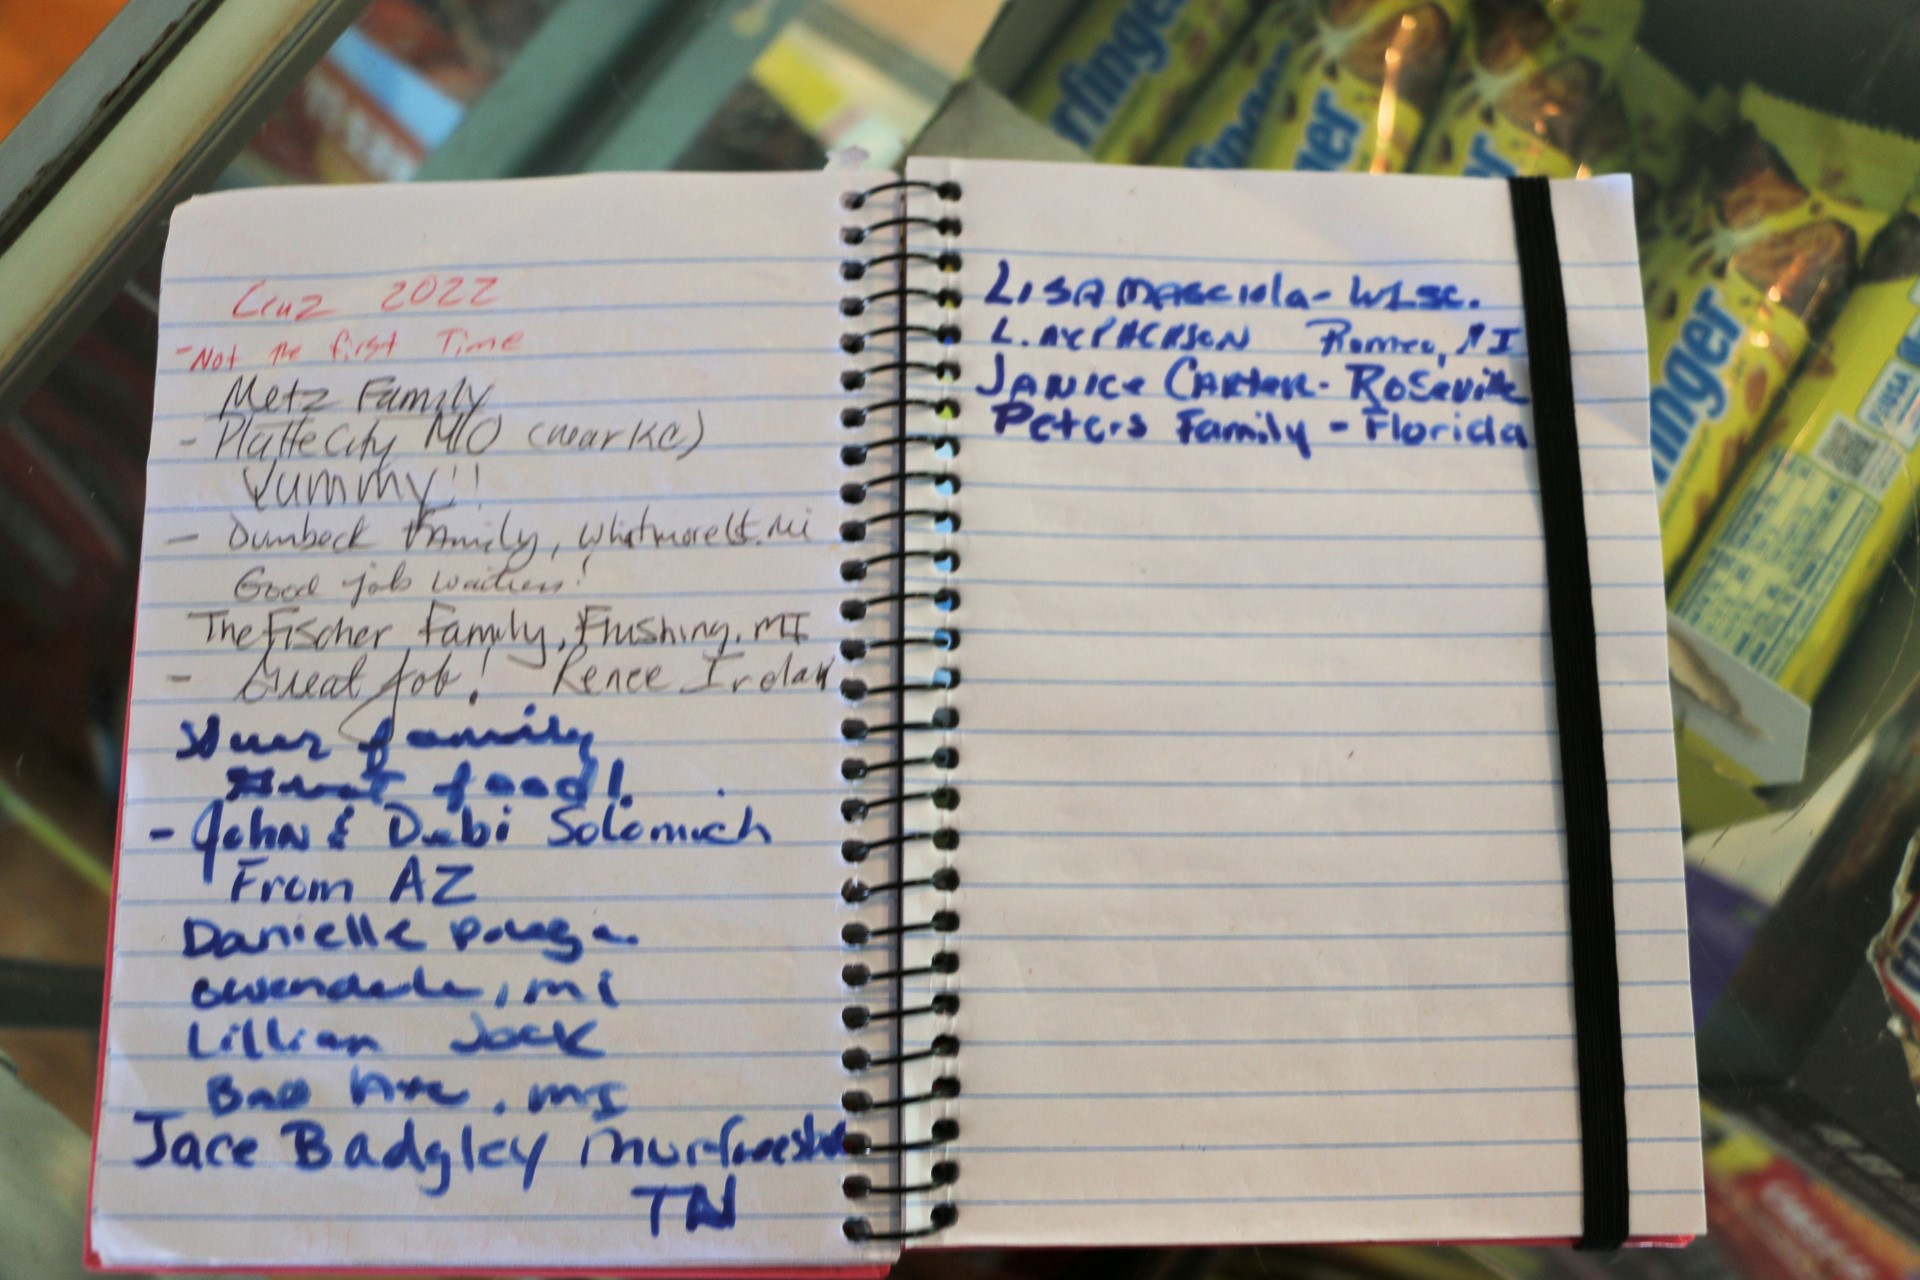 Cruz 2022
- Not the first Time
Metz Family
- Platte City MO (near KC)
Yummy!!
- Dumbeck Family, Whitmore Lk. Mi
Good job waitress!
The Fischer Family, Flushing, MI
- Great Job! Renee Irelan
family
Great food!
- John & Debi Solomich
From AZ
Danielle
Owendale, mi
Lillian Jock
Bad Axe, MI
Jace Badgley Murfreesboro
TN
LISA MASCIOLA - WISC.
L. McPHERSON Romeo, MI
JANICE CARTER - ROSEVILLE
Peters Family - Florida
rfinger
finger
nger
er
finger
inger